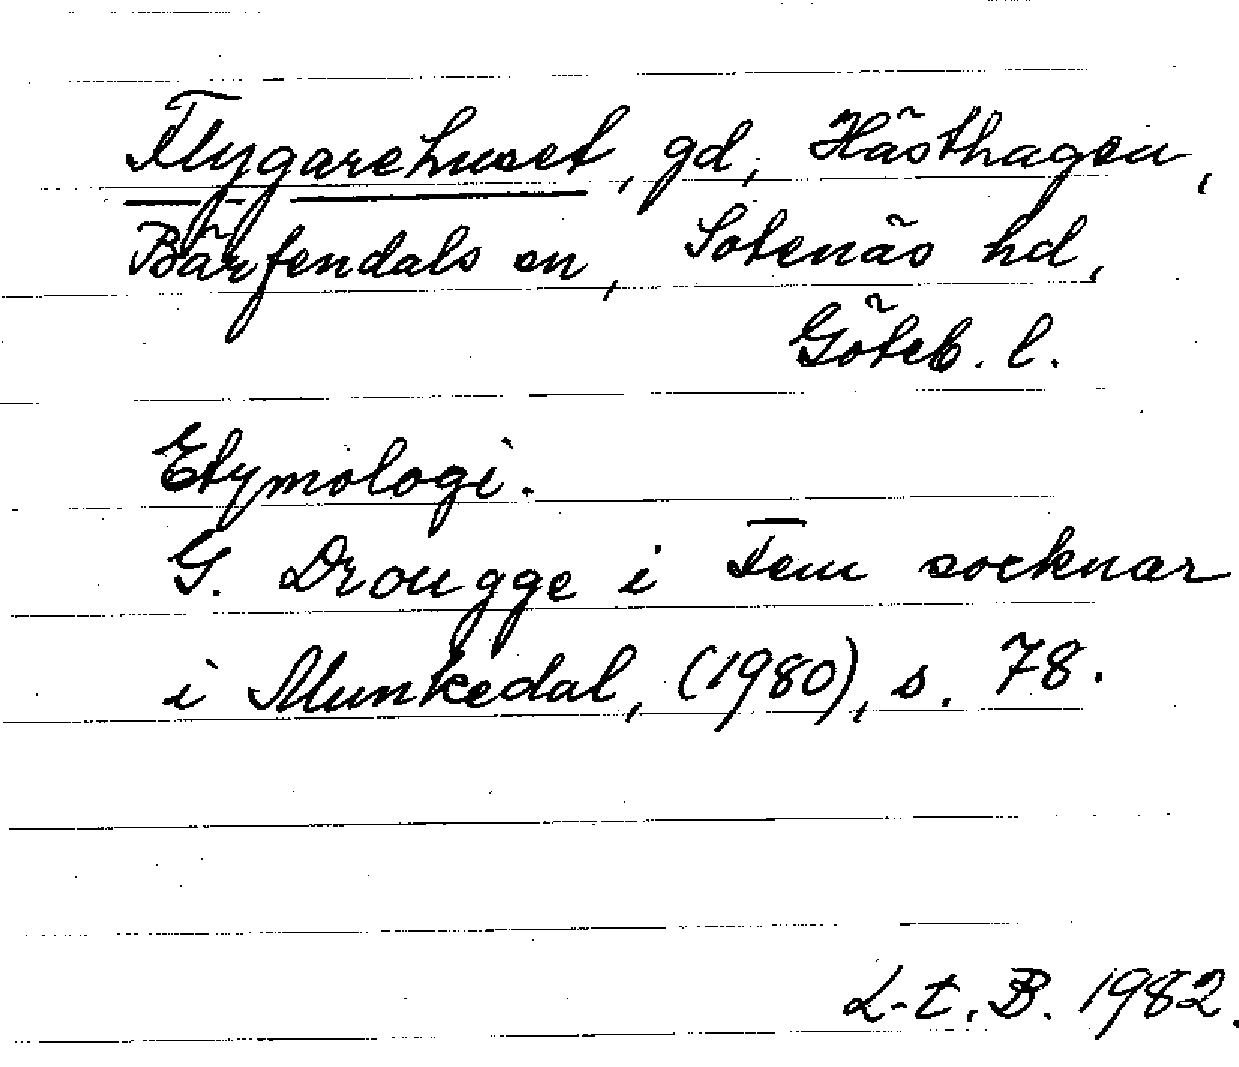 Flygarehuset, gd, Hästhagen,
Bärfendals sn, Sotenäs hd,
Göteb. l.
Etymologi.
G. Drougge i Fem socknar
i Munkedal, (1980), s. 78.
L-t. B. 1982.